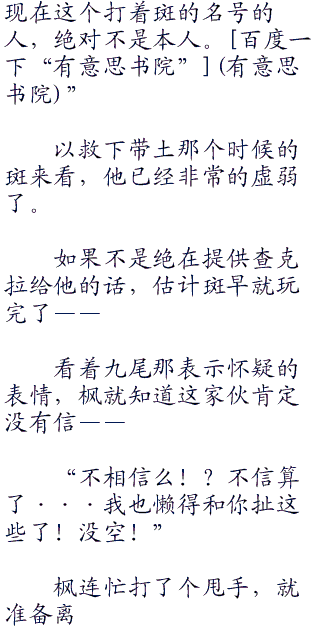 现在这个打着斑的名号的
人，绝对不是本人。[百度一
下“有意思书院”](有意思
书院)”
以救下带土那个时候的
斑来看，他已经非常的虚弱
了。
如果不是绝在提供查克
拉给他的话，估计斑早就玩
完了——
看着九尾那表示怀疑的
表情，枫就知道这家伙肯定
没有信——
“不相信么！？不信算
了···我也懒得和你扯这
些了！没空！”
枫连忙打了个甩手，就
准备离